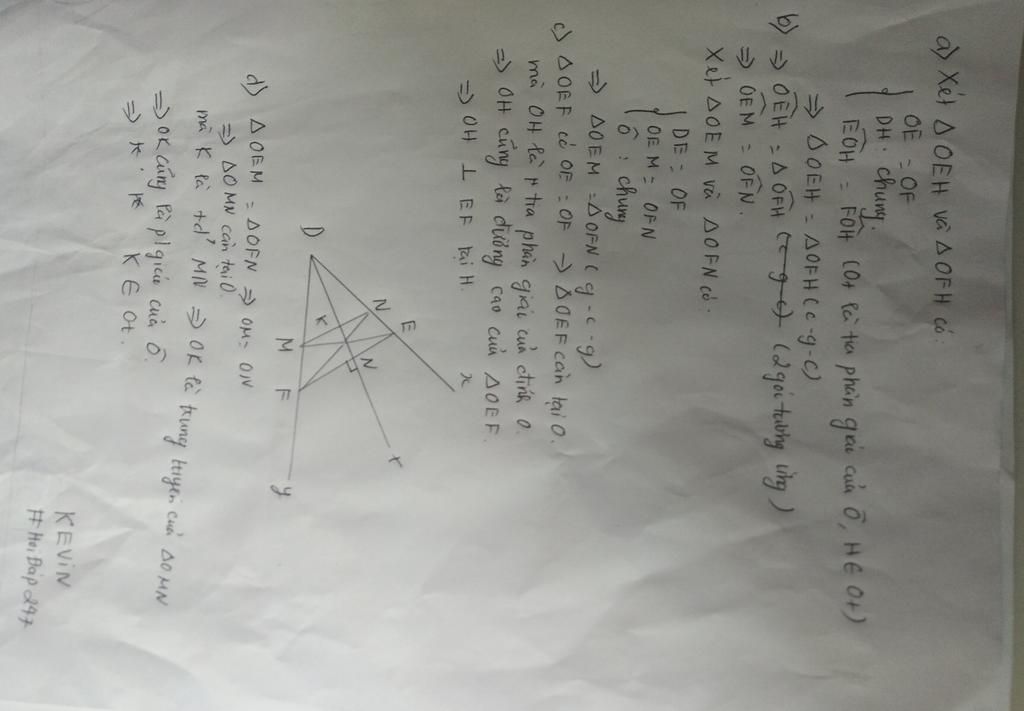 a) Xét Δ OEH và Δ OFH có:
OE = OF
DH: chung.
EOH = FOH (Ot là tia phân giác của Ô, H ∈ Ot)
⇒ Δ OEH = Δ OFH (c-g-c)
b) ⇒ OEH = Δ OFH (2 góc tương ứng)
⇒ OEM = OFN.
Xét Δ OEM và Δ OFN có:
DE = OF
OEM = OFN
Ô : chung
⇒ Δ OEM = Δ OFN (g-c-g)
c) Δ OEF có OE = OF ⇒ Δ OEF cân tại O.
mà OH là tia phân giác của đỉnh O.
⇒ OH cũng là đường cao của Δ OEF.
⇒ OH ⊥ EF tại H.
x
E
N
N
t
D
K
M
F
y
d) Δ OEM = Δ OFN ⇒ OM = ON
⇒ Δ OMN cân tại O.
mà K là tđ' MN ⇒ OK là trung tuyến của Δ OMN
⇒ OK cũng là p/giác của Ô.
⇒ K ∈ Ot.
KEViN
#HoiDap247